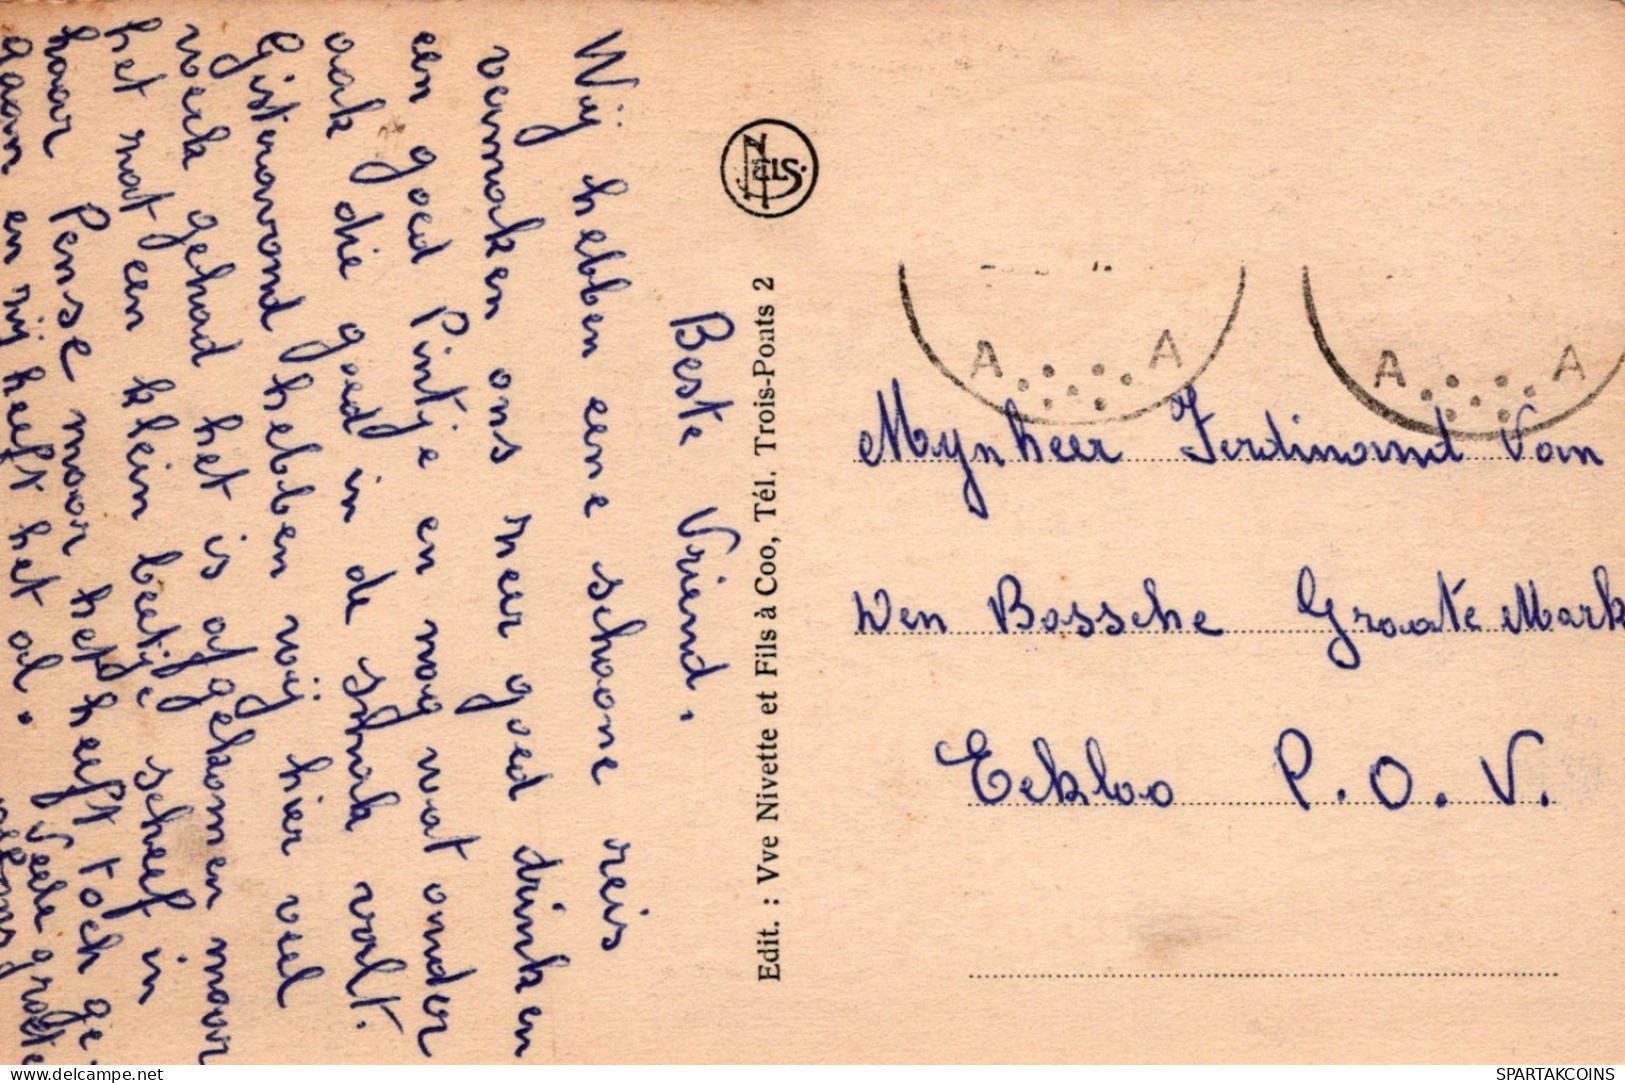 Beste Vriend.
Wij hebben eene schoone reis
vermaken ons neer goed drinken
een goed Pintje en nog wat onder
ook die goed in de smak valt.
Gisteravond hebben wij hier veel
werk gehad het is afgekomen maar
het nat een klein beetje scheef in
haar Pense maar het heeft toch ge.
gaan en rij heeft het al.
Veele groete
Edit. : Vve Nivette et Fils à Coo, Tél. Trois-Ponts 2
NELS
A A
A A
Mynheer Ferdinand Van
Den Bossche Groote Mark
Eekloo P.O.V.
www.delcampe.net
SPARTAKCOINS